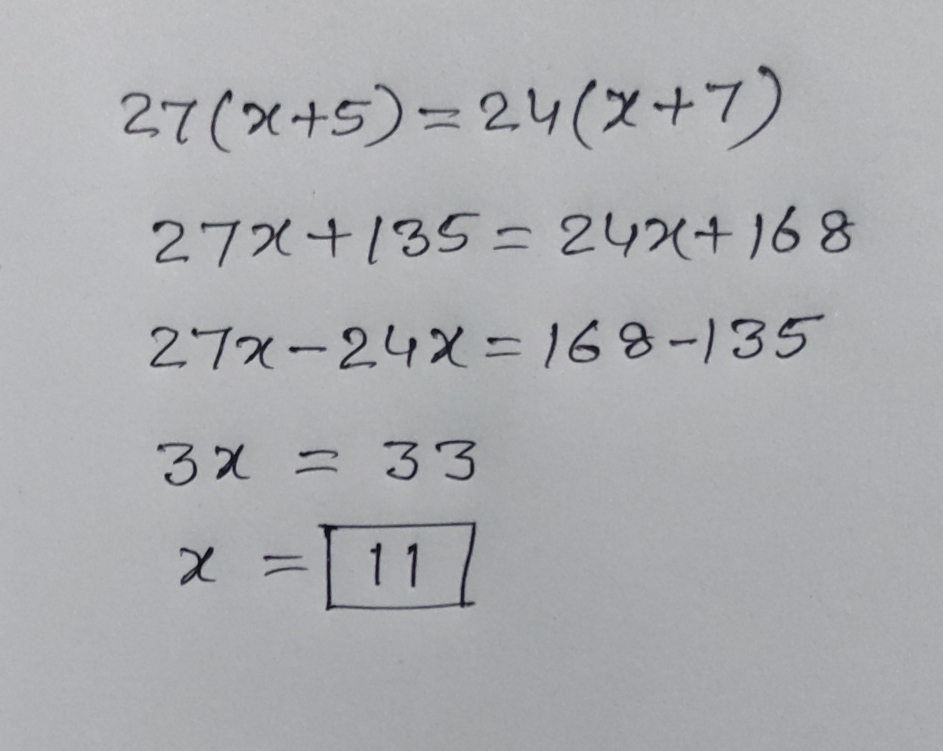 27(x+5)=24(x+7)
27x+135=24x+168
27x-24x=168-135
3x = 33
x = 11